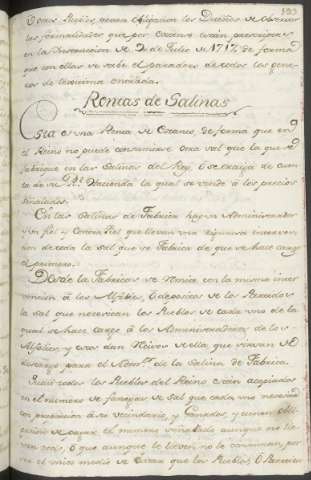 123
Pueblos, tienen obligacion los Dueños de observar
las formalidades que por extenso están prevenidas
en la Instruccion de 2 de Julio de 1717, de forma
que con ellas se sabe el paradero de todos los gene-
ros de lexitima entrada.
Rentas de Salinas
Esta es una Renta de Estanco, de forma que en
el Reino no puede consumirse otra sal que la que se
fabrique en las Salinas del Rey, ó se traiga de cuen-
ta de su Rl. Hacienda la qual se vende á los precios
señalados.
En las Salinas de Fabrica hay un Administrador
un fiel y Contra fiel que llevan una rigurosa interven-
cion de toda la sal que se Fabrica de que se hace cargo
al primero.
Desde la Fabrica se remite con la misma inter-
vencion á los Alfolíes, ó depositos de los Partidos
la sal que necesitan los Pueblos de cada uno de la
qual se hace cargo á los Administradores de los
Alfolíes, y estos dan Recivo de ella que sirven de
descargo para el Admor. de la Salina de Fabrica.
todos los Pueblos del Reino están acopiados
en el numero de fanegas de sal que cada uno necesita
con proporcion á su vecindario, y Ganados, y tienen obli-
gacion de pagar el numero señalado aunque no lle-
ven toda, ó que aunque la lleven no la consuman, por
ser el unico medio de que los Pueblos, ó